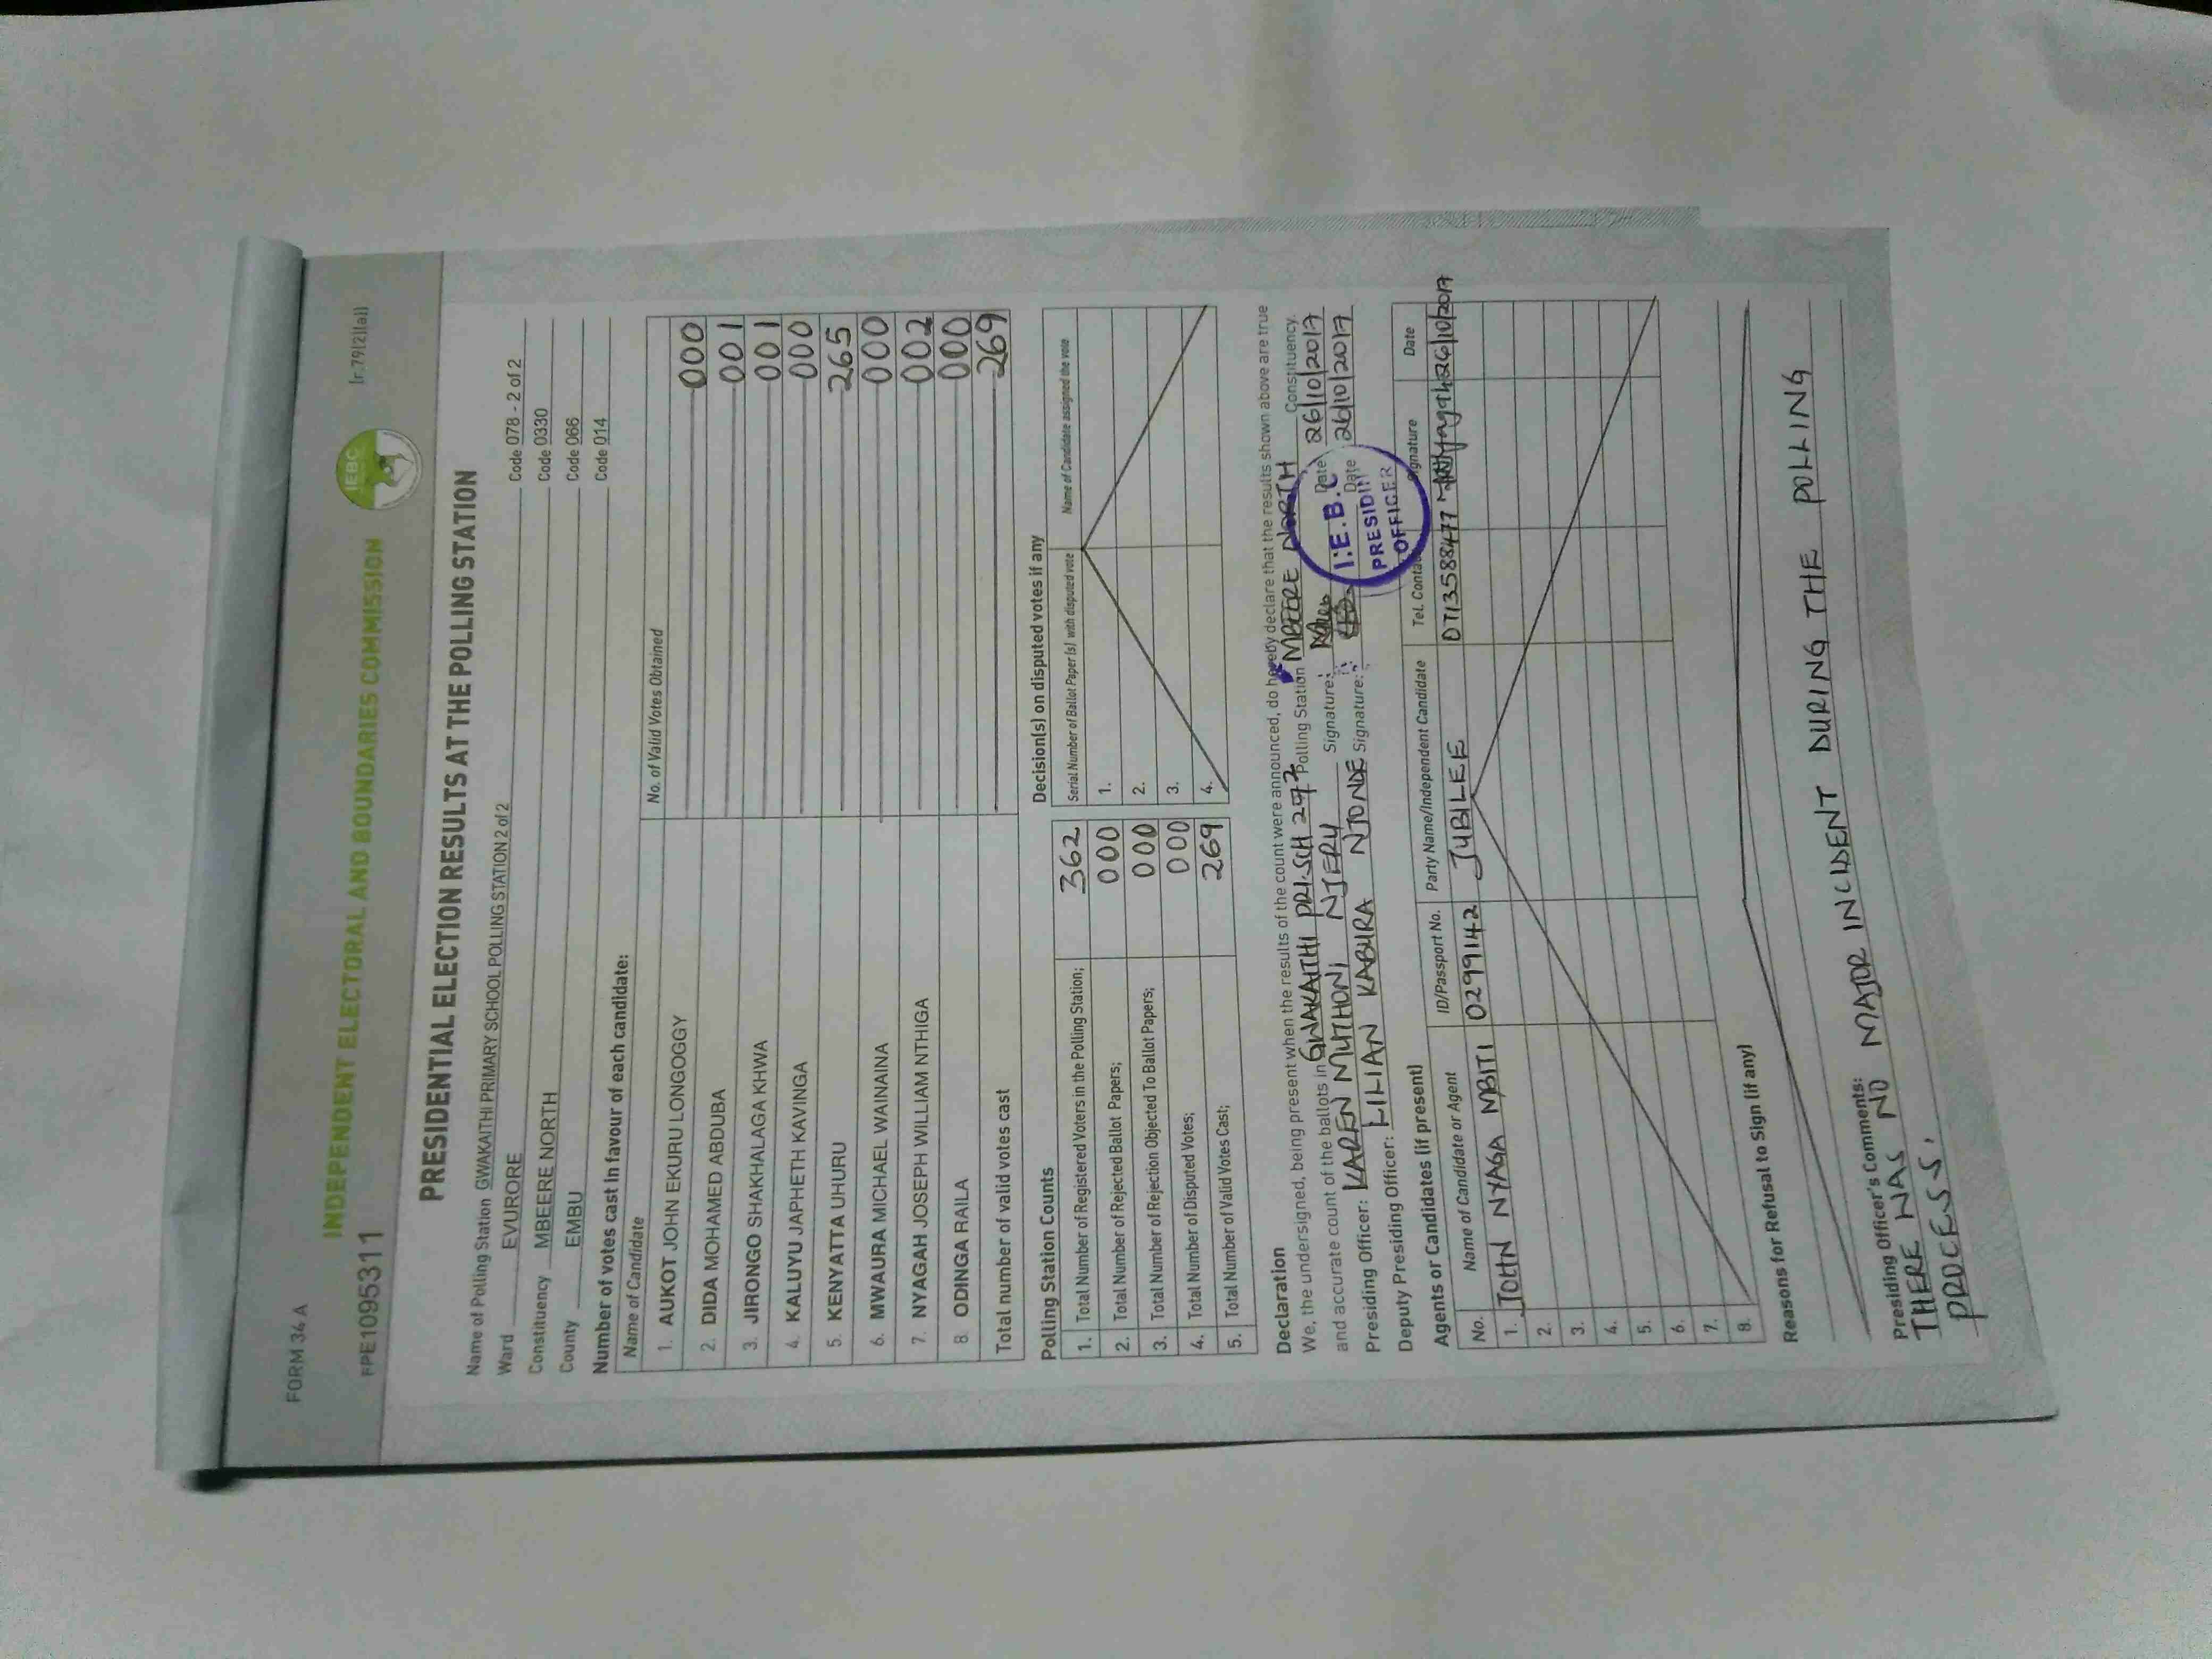 FORM 34 A
INDEPENDENT ELECTORAL AND BOUNDARIES COMMISSION
IEBC
(r.79(2)(a))
PPE1095311
PRESIDENTIAL ELECTION RESULTS AT THE POLLING STATION
Name of Polling Station GWAKAITHI PRIMARY SCHOOL POLLING STATION 2 of 2 Code 078 - 2 of 2
Ward EVURORE Code 0330
Constituency MBEERE NORTH Code 066
County EMBU Code 014
Number of votes cast in favour of each candidate:
Name of Candidate No. of Valid Votes Obtained
1. AUKOT JOHN EKURU LONGOGGY 000
2. DIDA MOHAMED ABDUBA 001
3. JIRONGO SHAKHALAGA KHWA 001
4. KALUYU JAPHETH KAVINGA 000
5. KENYATTA UHURU 265
6. MWAURA MICHAEL WAINAINA 000
7. NYAGAH JOSEPH WILLIAM NTHIGA 002
8. ODINGA RAILA 000
Total number of valid votes cast 269
Polling Station Counts
1. Total Number of Registered Voters in the Polling Station; 362
2. Total Number of Rejected Ballot Papers; 000
3. Total Number of Rejection Objected To Ballot Papers; 000
4. Total Number of Disputed Votes; 000
5. Total Number of Valid Votes Cast; 269
Decision(s) on disputed votes if any
Serial Number of Ballot Paper (s) with disputed vote Name of Candidate assigned the vote
1.
2.
3.
4.
Declaration
We, the undersigned, being present when the results of the count were announced, do hereby declare that the results shown above are true
and accurate count of the ballots in GWAKAITHI PRI SCH 2 of 2 Polling Station MBEERE NORTH Constituency.
Presiding Officer: KAREN MUTHONI NJERU Signature: Date 26/10/2017
Deputy Presiding Officer: LILIAN KABURA NJONDE Signature: Date 26/10/2017
I.E.B.C
PRESIDING
OFFICER
Agents or Candidates (if present)
No. Name of Candidate or Agent ID/Passport No. Party Name/Independent Candidate Tel. Contact Signature Date
1. JOHN NYAGA MBITI 0299142 JUBILEE 0713588477 26/10/2017
2.
3.
4.
5.
6.
7.
8.
Reasons for Refusal to Sign (if any)
Presiding Officer's Comments:
THERE WAS NO MAJOR INCIDENT DURING THE POLLING
PROCESS.